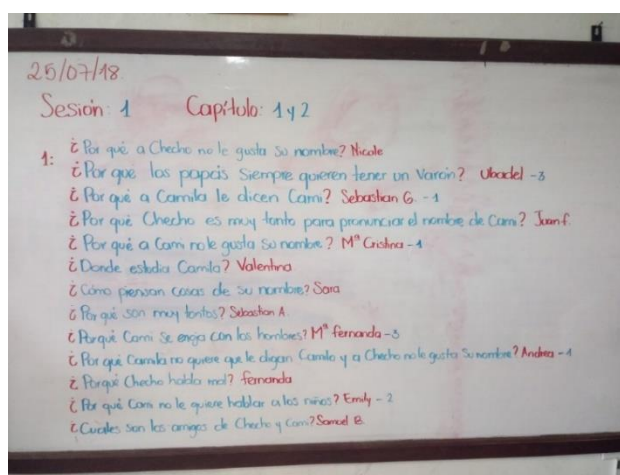 25/07/18.
Sesión: 1 Capítulo: 1 y 2
1: ¿Por qué a Checho no le gusta su nombre? Nicole
¿Por que los papás siempre quieren tener un Varón? Ubadel - 3
¿Por qué a Camila le dicen Cami? Sebastian G. - 1
¿Por qué Checho es muy tonto para pronunciar el nombre de Cami? Juan f.
¿Por qué a Cami no le gusta su nombre? Mª Cristina - 1
¿Donde estudia Camila? Valentina
¿Cómo piensan cosas de su nombre? Sara
¿Por qué son muy tontos? Sebastian A.
¿Porqué Cami se enoja con los hombres? Mª fernanda - 3
¿Por qué Camila no quiere que le digan Camilo y a Checho no le gusta su nombre? Andrea - 1
¿Porqué Checho habla mal? fernanda
¿Por qué Cami no le quiere hablar a los niños? Emily - 2
¿Cuáles son los amigos de Checho y Cami? Samuel B.